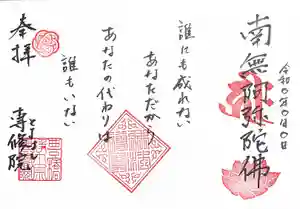 令和〇年〇月〇日
南無阿弥陀佛
誰にも成れない
あなただから
あなたの代わりは
誰もいない
奉拝
専修院